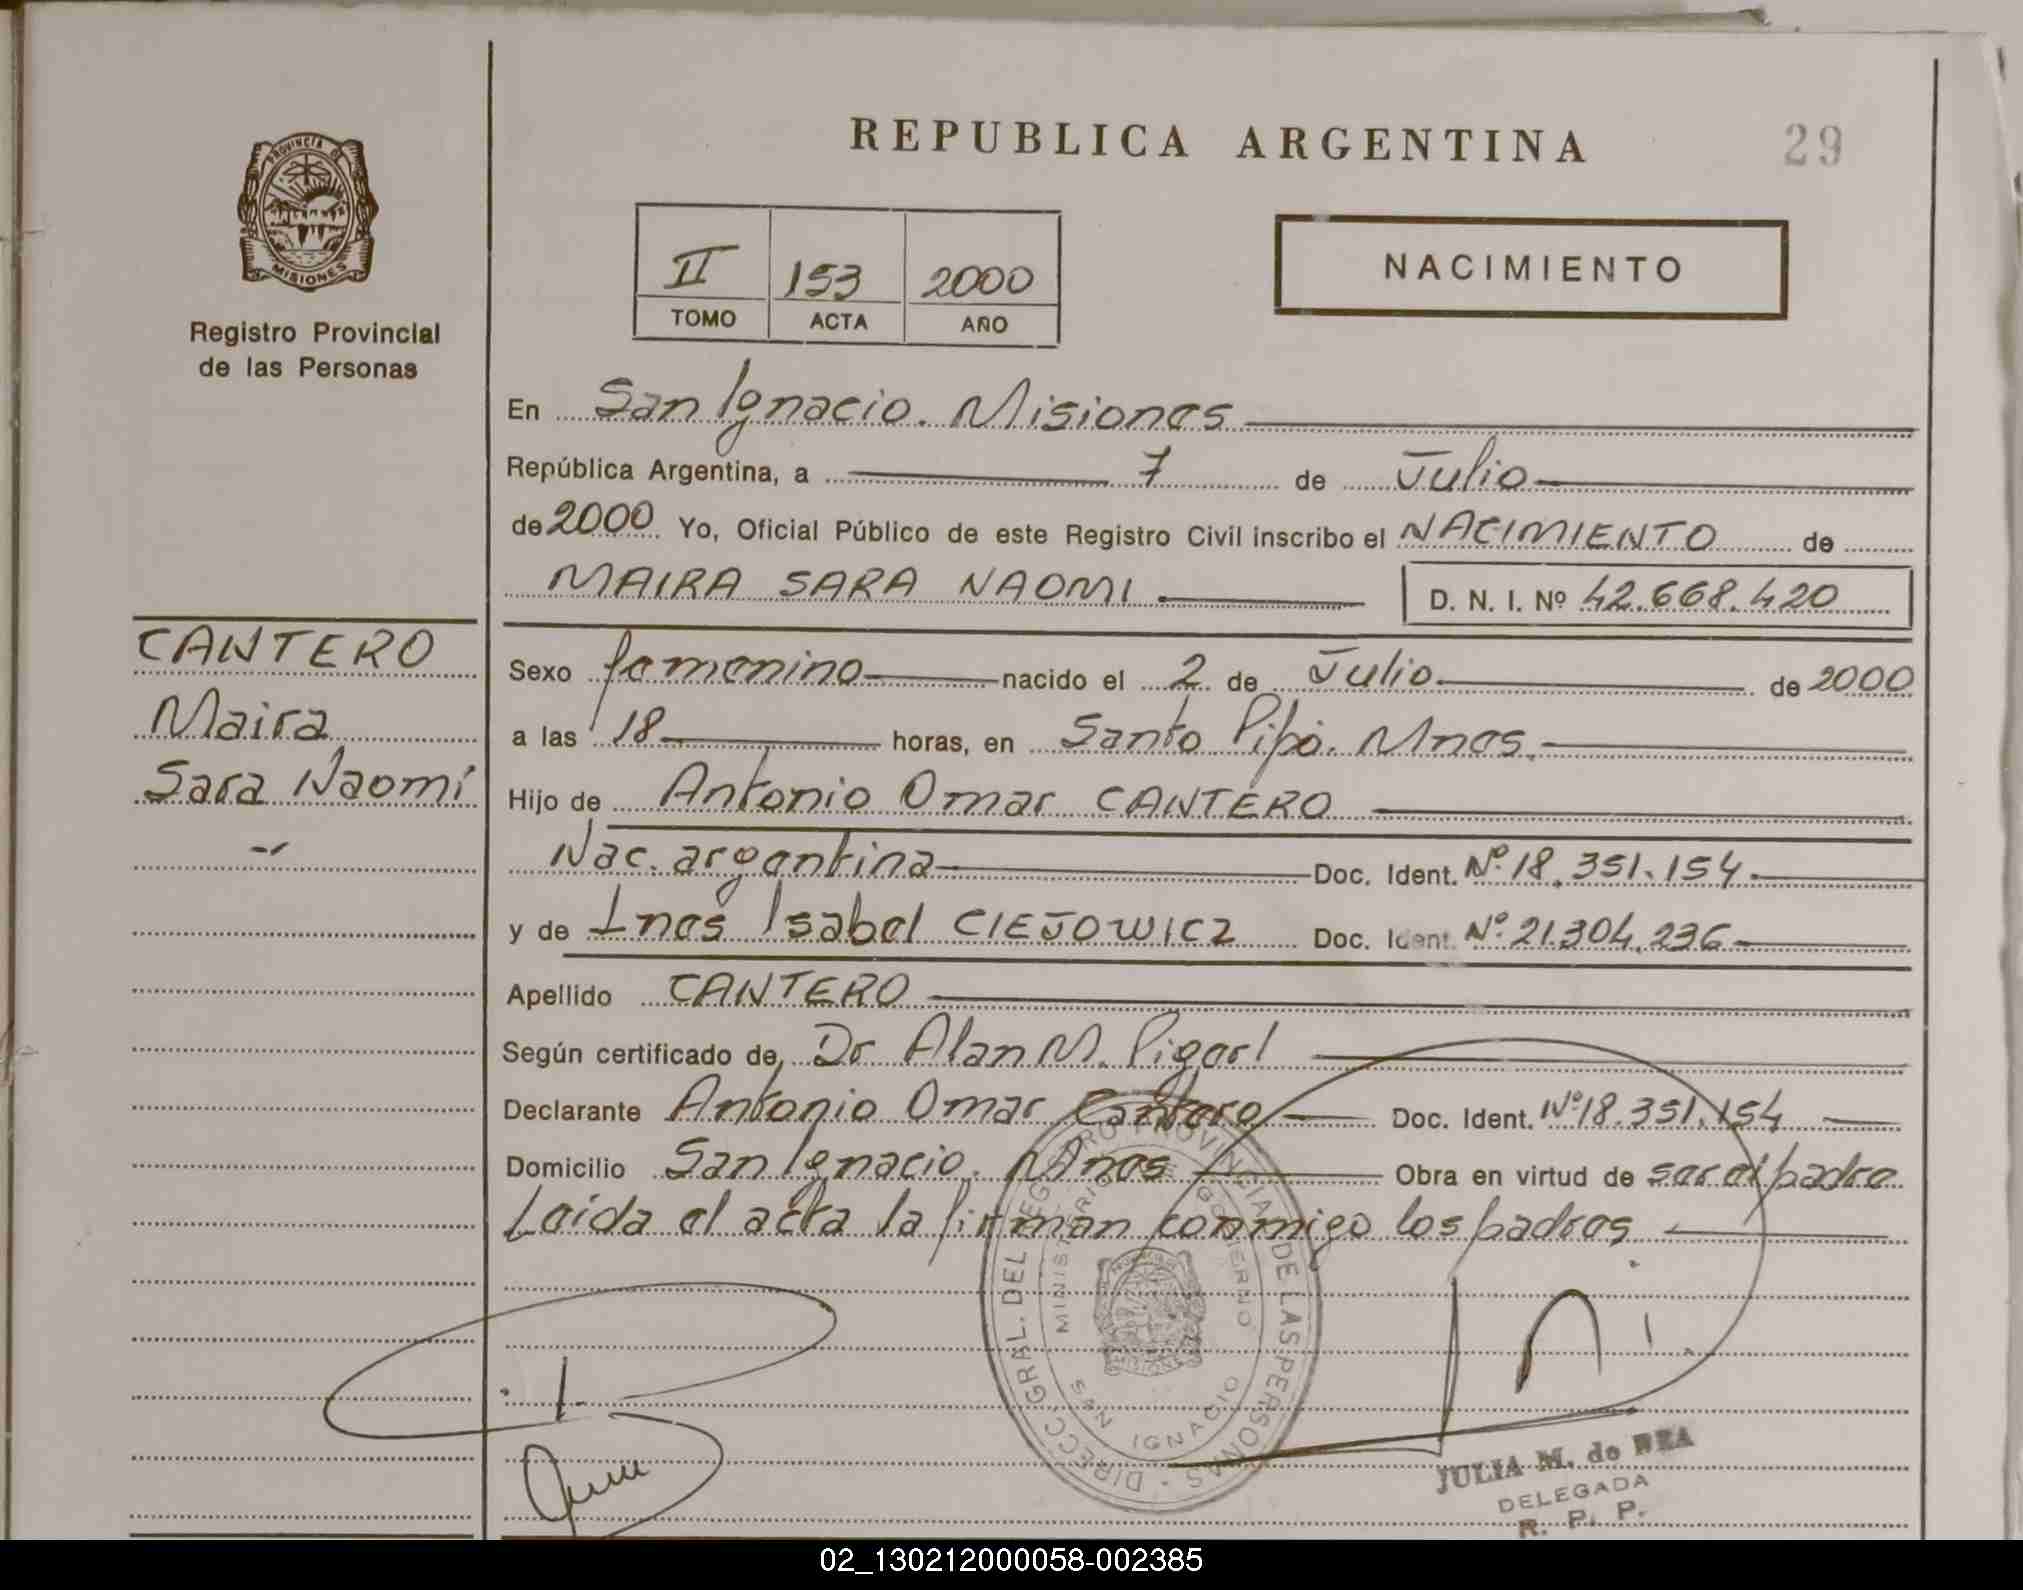 REPUBLICA ARGENTINA
29
PROVINCIA DE
MISIONES
Registro Provincial
de las Personas
II 153 2000
TOMO ACTA AÑO
NACIMIENTO
En San Ignacio. Misiones
República Argentina, a 7 de Julio
de 2000 Yo, Oficial Público de este Registro Civil inscribo el NACIMIENTO de
MAIRA SARA NAOMI D. N. I. Nº 42.668.420
CANTERO
Maira
Sara Naomi
Sexo femenino nacido el 2 de Julio de 2000
a las 18 horas, en Santo Pipó. Mnes.
Hijo de Antonio Omar CANTERO
Nac. argentina Doc. Ident. Nº 18.351.154
y de Ines Isabel CIEJOWICZ Doc. Ident. Nº 21.304.236
Apellido CANTERO
Según certificado de Dr Alan M.
Declarante Antonio Omar Cantero Doc. Ident. Nº 18.351.154
Domicilio San Ignacio. Mnes Obra en virtud de ser el padre
Leída el acta la firman conmigo los padres
DIRECC. GRAL. DEL REGISTRO PROVINCIAL DE LAS PERSONAS
MINISTERIO DE GOBIERNO
SAN IGNACIO
MISIONES
JULIA M. de
DELEGADA
R. P. P.
02_130212000058-002385